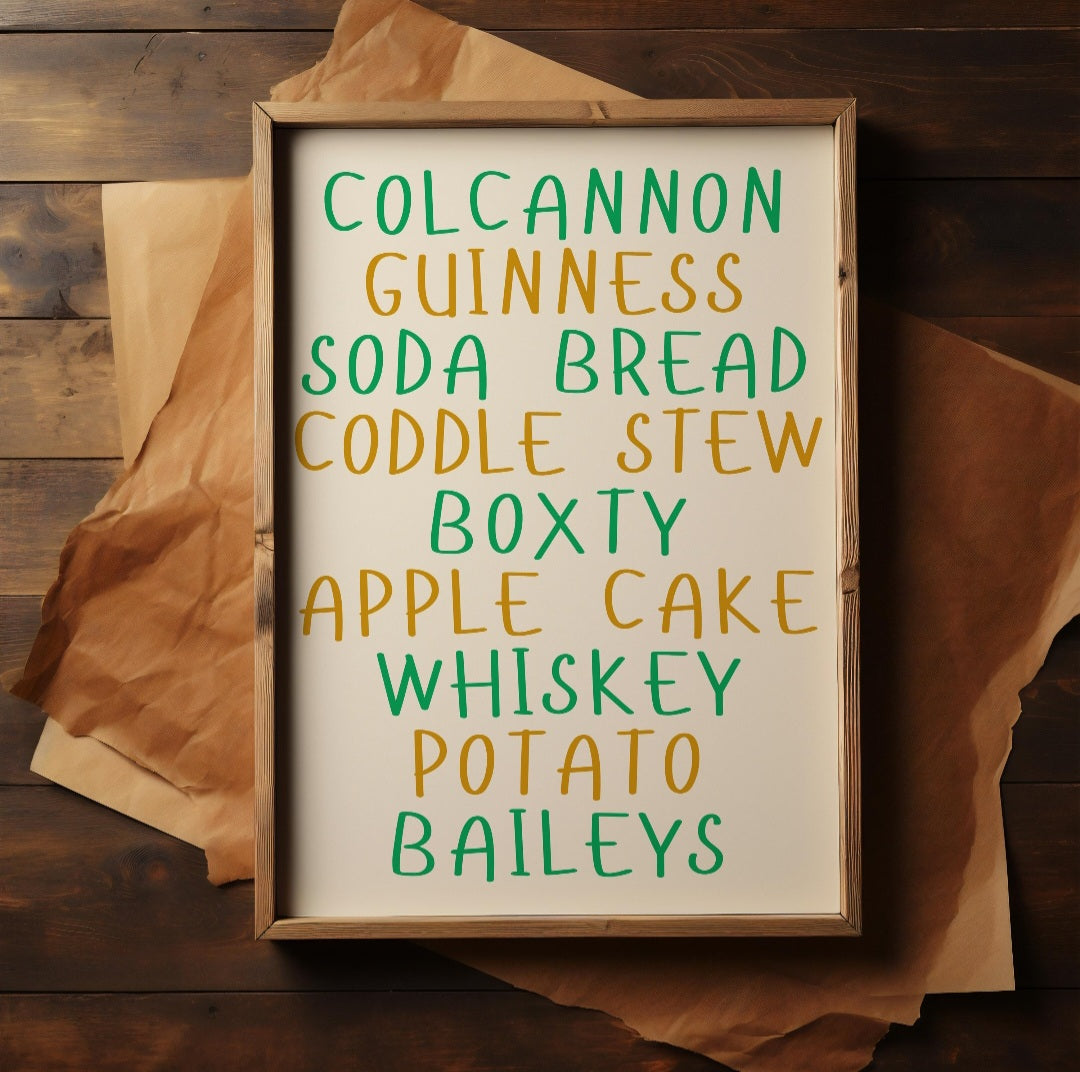 COLCANNON
GUINNESS
SODA BREAD
CODDLE STEW
BOXTY
APPLE CAKE
WHISKEY
POTATO
BAILEYS